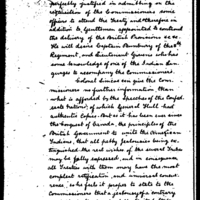 perfectly justified in admitting on the
requisition of the Commissioners some
officers to attend the Treaty and therefore in
addition to Gentlemen appointed to control
the delivery of the British Provisions &c &c.
He will desire Captain Bunbury of the 5th
Regiment, and Lieutenant Givens who has
some knowledge of one of the Indian lan-
guages to accompany the Commissioners.
Colonel Simcoe can give the Com-
missioners no further information, than
what is afforded by the speeches of the Confed-
erate Nations, of which General Hull has
authentic Copies. But as it has been ever since
the conquest of Canada, the principles of the
British Government to unite the American
Indians, that all petty jealousies being ex-
tinguished the real wishes of the several Tribes
may be fully expressed, and in consequence
all Treaties with them may have the most
compleat ratification, and universal concur-
rence, so he feels it proper to state to the
Commissioners that a jealousy of a contrary